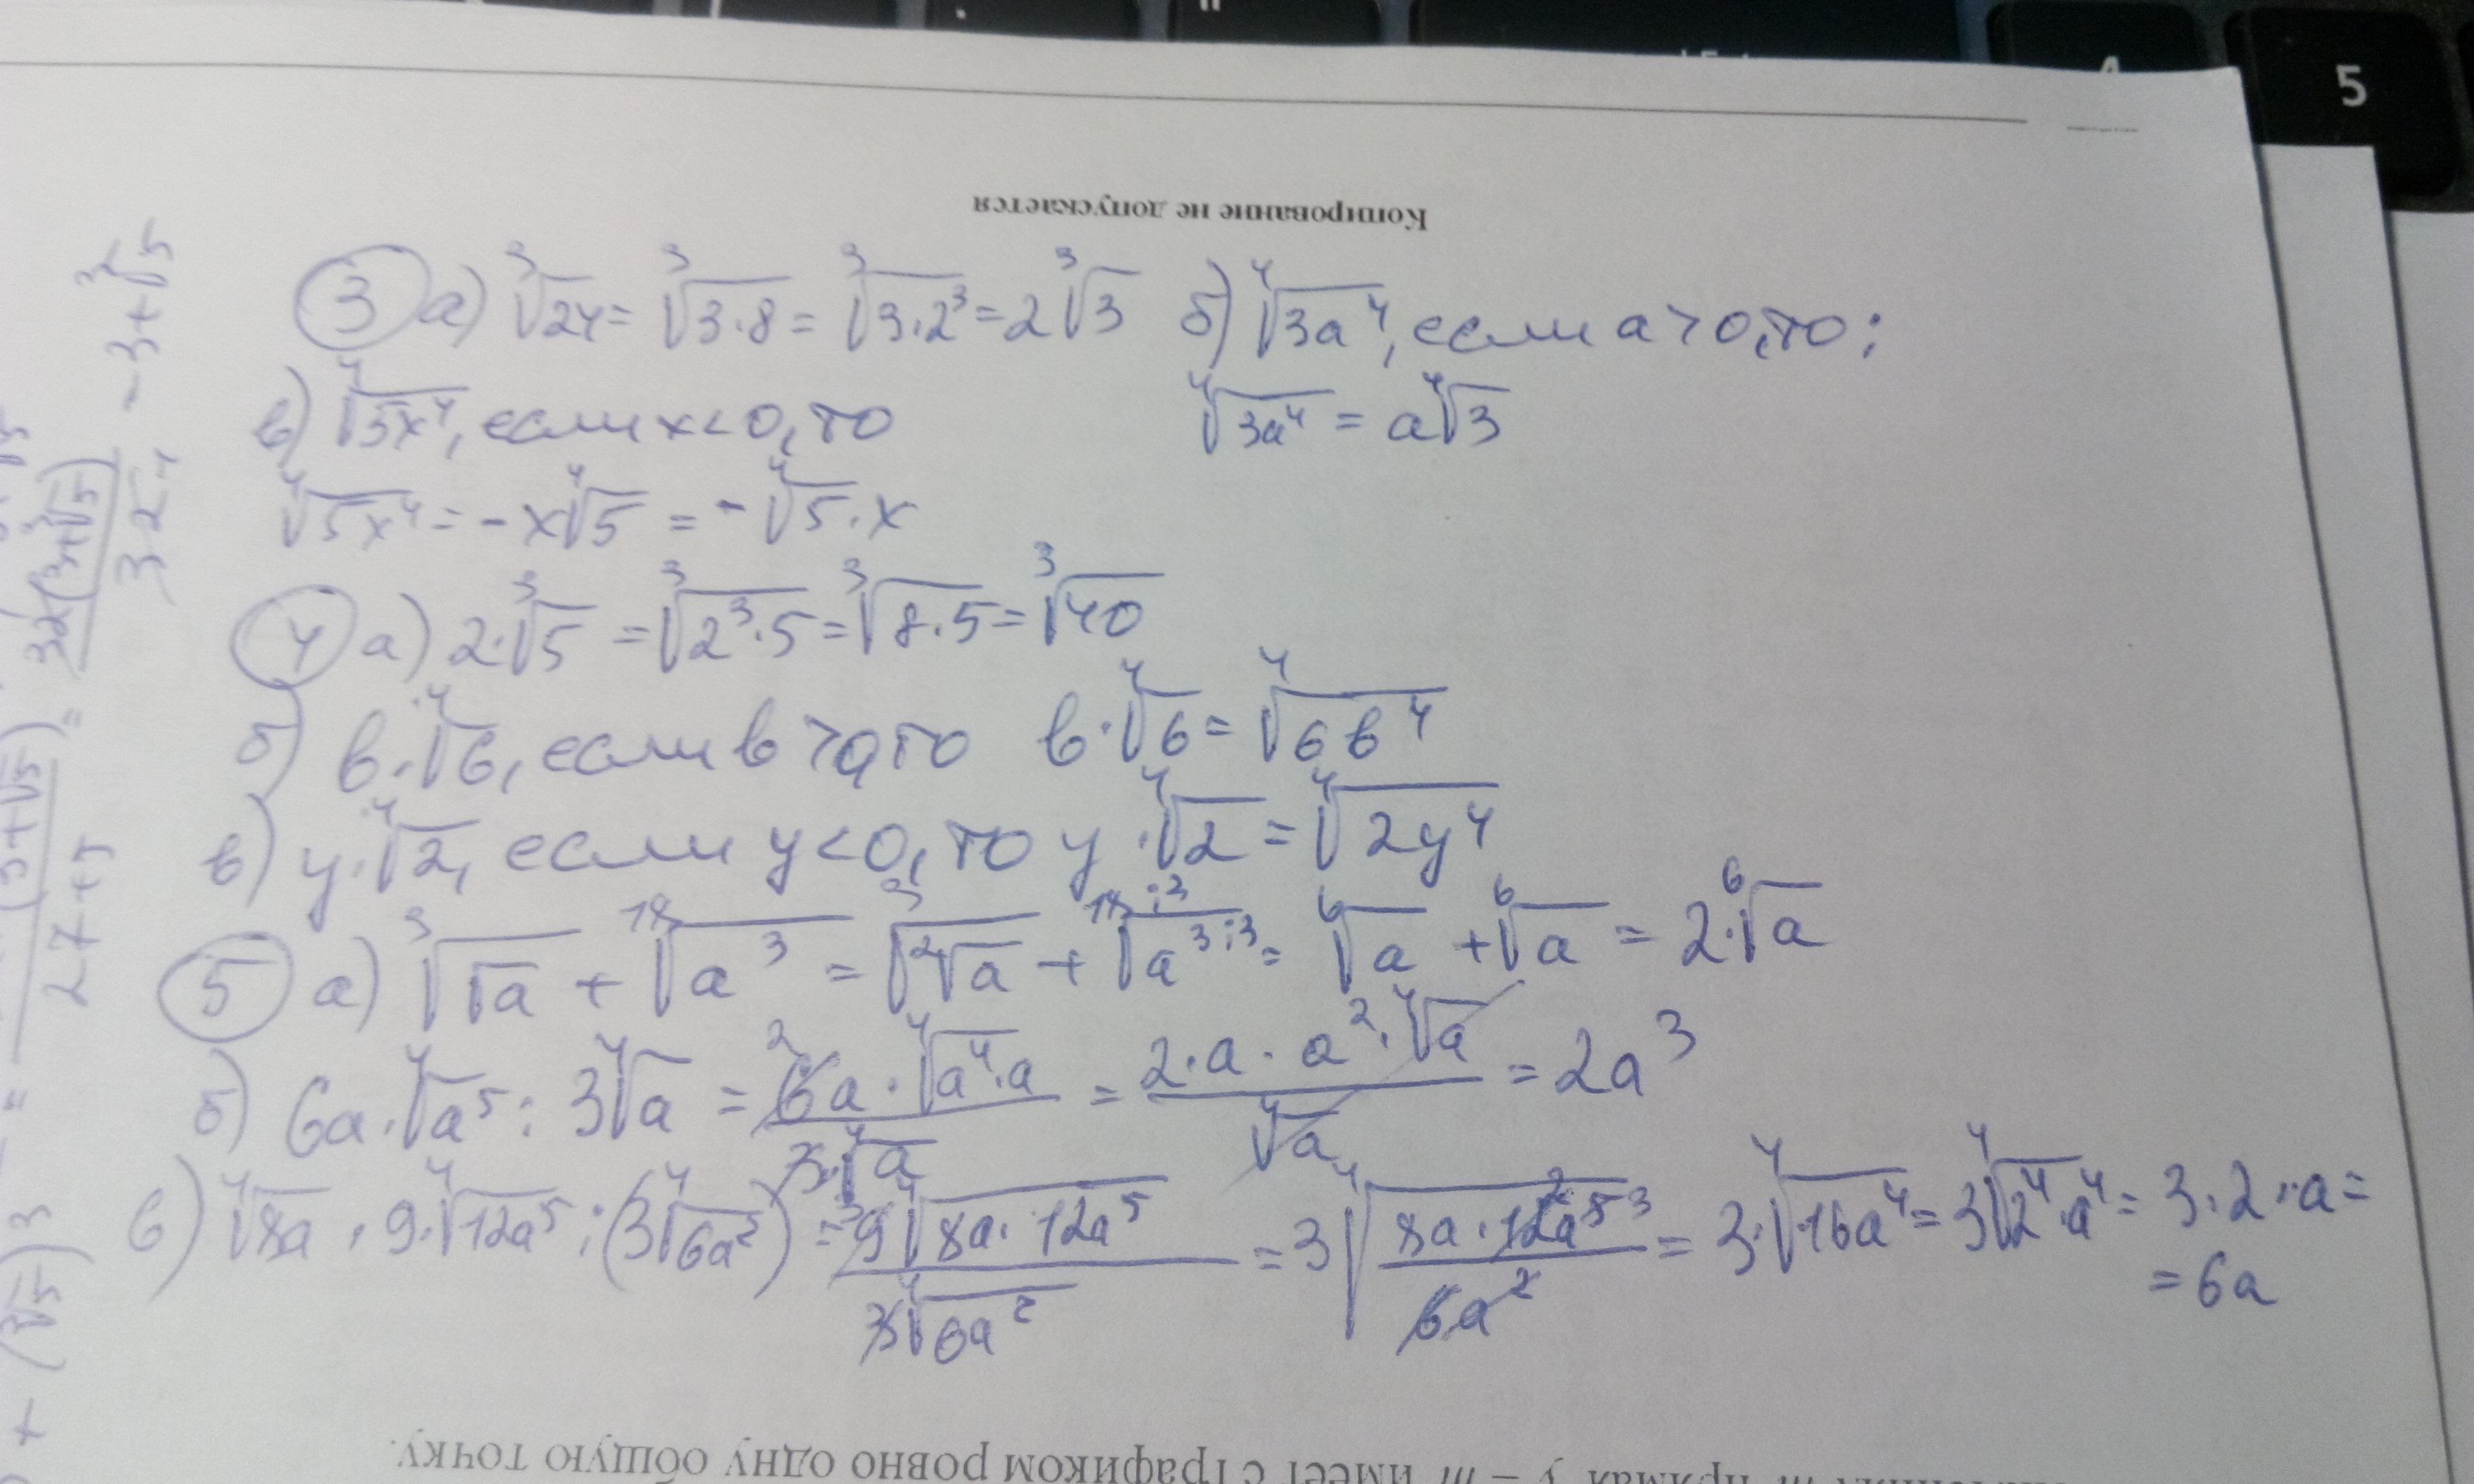 5
Копирование не допускается
③ а) ∛24 = ∛(3·8) = ∛(3·2³) = 2∛3 б) ∜(3a⁴), если a > 0, то;
в) ∜(5x⁴), если x < 0, то ∜(3a⁴) = a∜3
∜(5x⁴) = -x∜5 = -∜5·x
④ а) 2·∛5 = ∛(2³·5) = ∛(8·5) = ∛40
б) в·∜6, если в > 0, то в·∜6 = ∜(6в⁴)
в) y·∜2, если y < 0, то y·∜2 = ∜(2y⁴)
⑤ а) ∛(√a) + ¹⁸√(a³) = ∛(²√a) + ¹⁸:³√(a³:³) = ⁶√a + ⁶√a = 2·⁶√a
б) 6a·∜(a⁵) : 3∜a = 6a·∜(a⁴·a) / 3·∜a = 2·a·a²·∜a / ∜a = 2a³
в) ∜(8a) · 9·∜(12a⁵) : (3∜(6a²)) = 9∜(8a·12a⁵) / 3∜(6a²) = 3∜(8a·12a⁵ / 6a²) = 3·∜(16a⁴) = 3∜(2⁴·a⁴) = 3·2·a =
= 6a
прямая y = m имеет с графиком ровно одну общую точку.